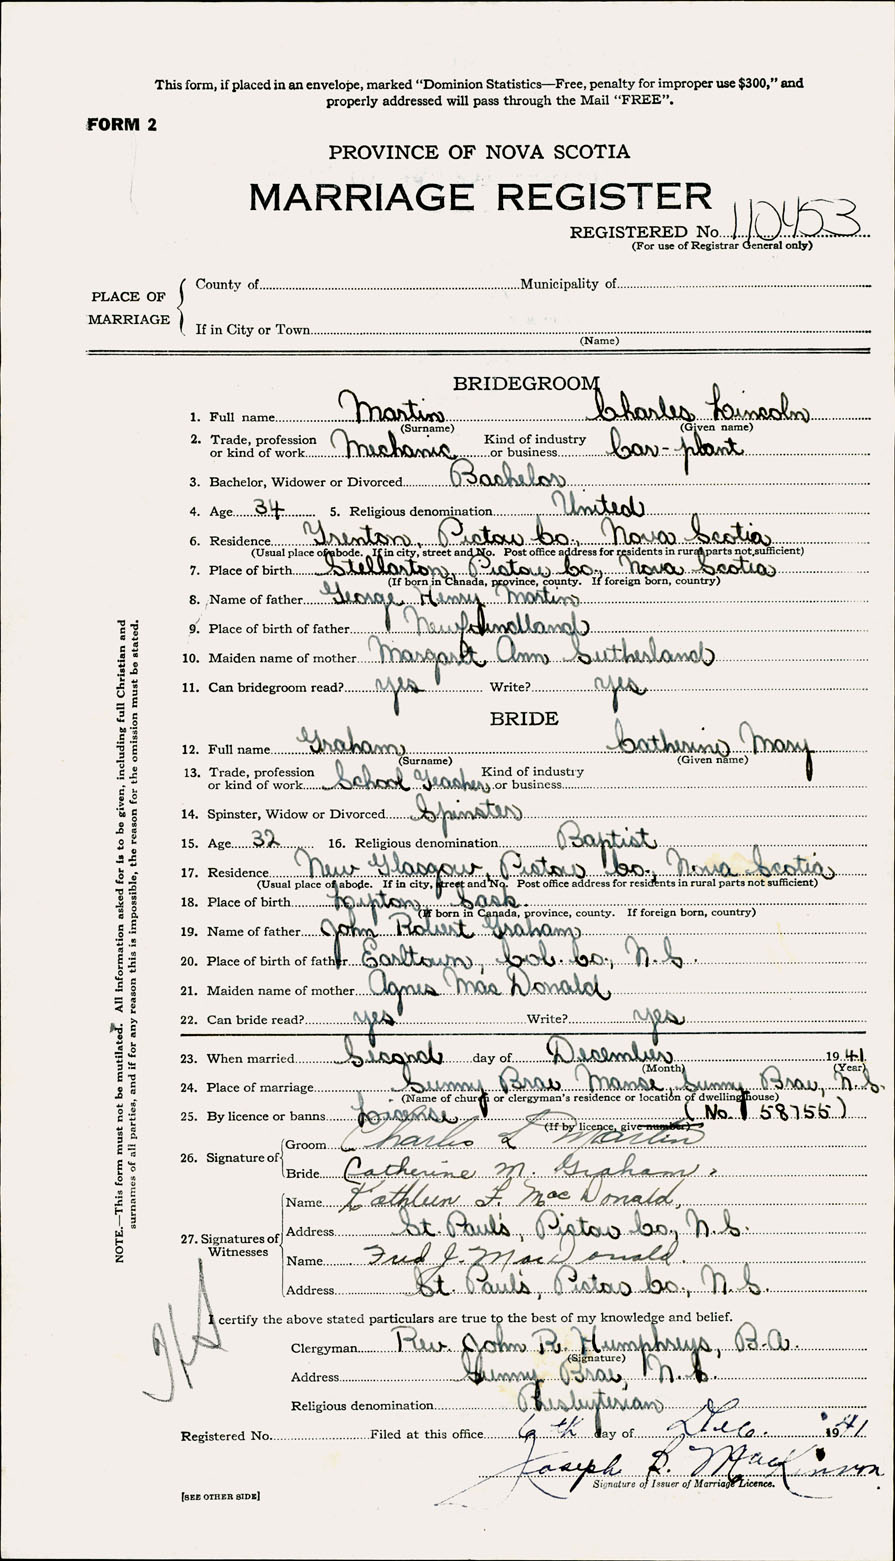 This form, if placed in an envelope, marked "Dominion Statistics—Free, penalty for improper use $300," and
properly addressed will pass through the Mail "FREE".
FORM 2
PROVINCE OF NOVA SCOTIA
MARRIAGE REGISTER
REGISTERED No. 110453
(For use of Registrar General only)
PLACE OF MARRIAGE
County of Municipality of
If in City or Town
(Name)
BRIDEGROOM
1. Full name Martin Charles Lincoln
(Surname) (Given name)
2. Trade, profession or kind of work Mechanic Kind of industry or business Car-plant
3. Bachelor, Widower or Divorced Bachelor
4. Age 34 5. Religious denomination United
6. Residence Trenton, Pictou Co., Nova Scotia
(Usual place of abode. If in city, street and No. Post office address for residents in rural parts not sufficient)
7. Place of birth Stellarton, Pictou Co., Nova Scotia
(If born in Canada, province, county. If foreign born, country)
8. Name of father George Henry Martin
9. Place of birth of father Newfoundland
10. Maiden name of mother Margaret Ann Sutherland
11. Can bridegroom read? yes Write? yes
BRIDE
12. Full name Graham Catherine Mary
(Surname) (Given name)
13. Trade, profession or kind of work School Teacher Kind of industry or business
14. Spinster, Widow or Divorced Spinster
15. Age 32 16. Religious denomination Baptist
17. Residence New Glasgow, Pictou Co., Nova Scotia
(Usual place of abode. If in city, street and No. Post office address for residents in rural parts not sufficient)
18. Place of birth Lipton Sask.
(If born in Canada, province, county. If foreign born, country)
19. Name of father John Robert Graham
20. Place of birth of father Earltown, Col. Co., N.S.
21. Maiden name of mother Agnes MacDonald
22. Can bride read? yes Write? yes
23. When married Second day of December 1941
(Month) (Year)
24. Place of marriage Sunny Brae Manse, Sunny Brae, N.S.
(Name of church or clergyman's residence or location of dwelling house)
25. By licence or banns License (No. 58755)
(If by licence, give number)
26. Signature of
Groom Charles L Martin
Bride Catherine M. Graham.
27. Signatures of Witnesses
Name Kathleen F. MacDonald,
Address St. Paul's, Pictou Co., N.S.
Name Fred J. MacDonald.
Address St. Paul's, Pictou Co., N.S.
I certify the above stated particulars are true to the best of my knowledge and belief.
Clergyman Rev. John R. Humphreys, B.A.
(Signature)
Address Sunny Brae, N.S.
Religious denomination Presbyterian
Registered No. Filed at this office 6th day of Dec. 1941
Joseph MacKinnon
Signature of Issuer of Marriage Licence.
[SEE OTHER SIDE]
NOTE.—This form must not be mutilated. All information asked for is to be given, including full Christian and
surnames of all parties, and if for any reason this is impossible, the reason for the omission must be stated.